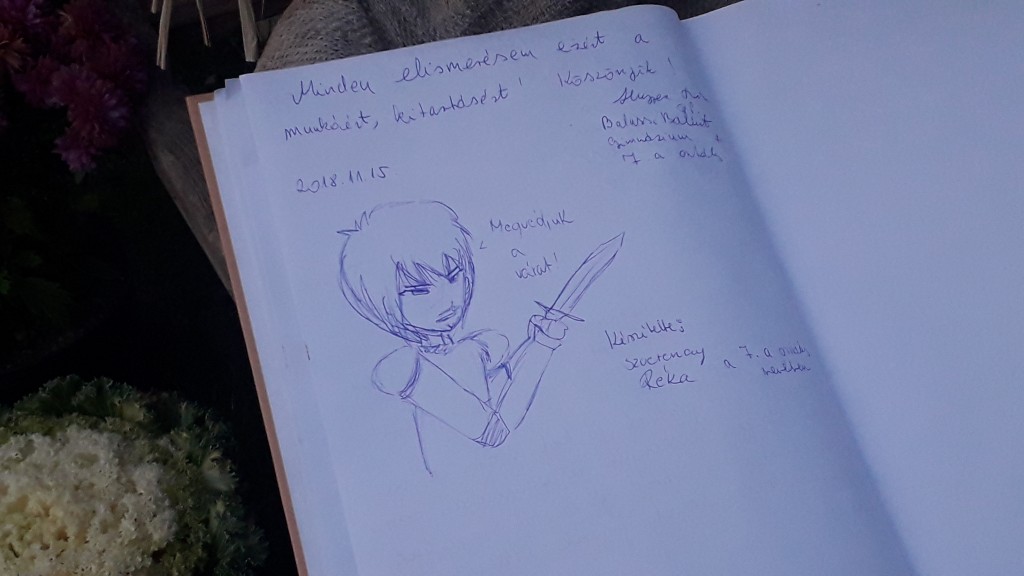 Minden elismerésem ezért a
munkáért, kitartásért! Köszönjük!
Balassi Bálint
gimnázium
7 a osztály
2018.11.15
Megvédjük
a
várat!
Készítette:
Réka a 7. a